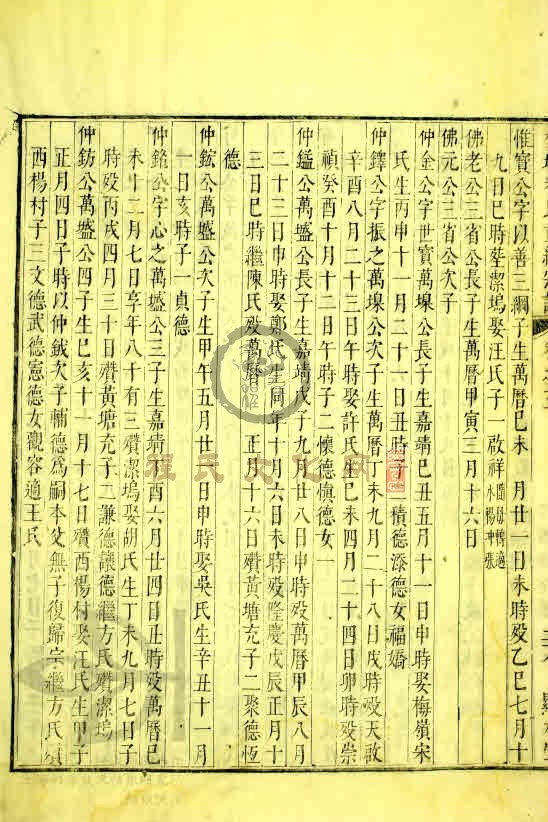 惟寶公字以善三綱子生萬曆巳未 月廿一日未時殁乙巳七月十
九日巳時塟潔塢娶汪氏子一啟祥
佛老公三省公長子生萬曆甲寅三月十六日
佛元公三省公次子
仲金公字世寶萬堁公長子生嘉靖巳丑五月十一日申時娶梅嶺宋
氏生丙申十一月二十一日丑時子 積德添德女福嬌
仲鐸公字振之萬堁公次子生萬曆丁未九月二十八日戌時殁天啟
辛酉八月二十三日午時娶許氏生巳未四月二十四日卯時殁崇
禎癸酉十月十二日午時子二懷德慎德女一
仲鎰公萬盛公長子生嘉靖戊子九月廿八日申時殁萬曆甲辰八月
二十三日申時娶鄭氏生同年十月六日未時殁隆慶戊辰正月十
三日巳時繼陳氏殁萬曆 正月十六日殯黃塘充子二聚德恆
德
仲鋐公萬盛公次子生甲午五月廿 日申時娶吳氏生辛丑十一月
一日亥時子一貞德
仲 公字心之萬盛公三子生嘉靖 酉六月廿四日丑時殁萬曆巳
未十二月七日享年八十有三殯潔塢娶胡氏生丁未九月七日子
時殁丙戌四月三十日殯黃塘充子二謙德讓德繼方氏殯潔塢
仲鈁公萬盛公四子生巳亥十一月十七日殯西楊村娶汪氏生甲子
正月四日子時以仲鉞次子輔德為嗣本支無子復歸宗繼方氏殯
西楊村子三文德武德憲德女觀容適王氏
程氏文化